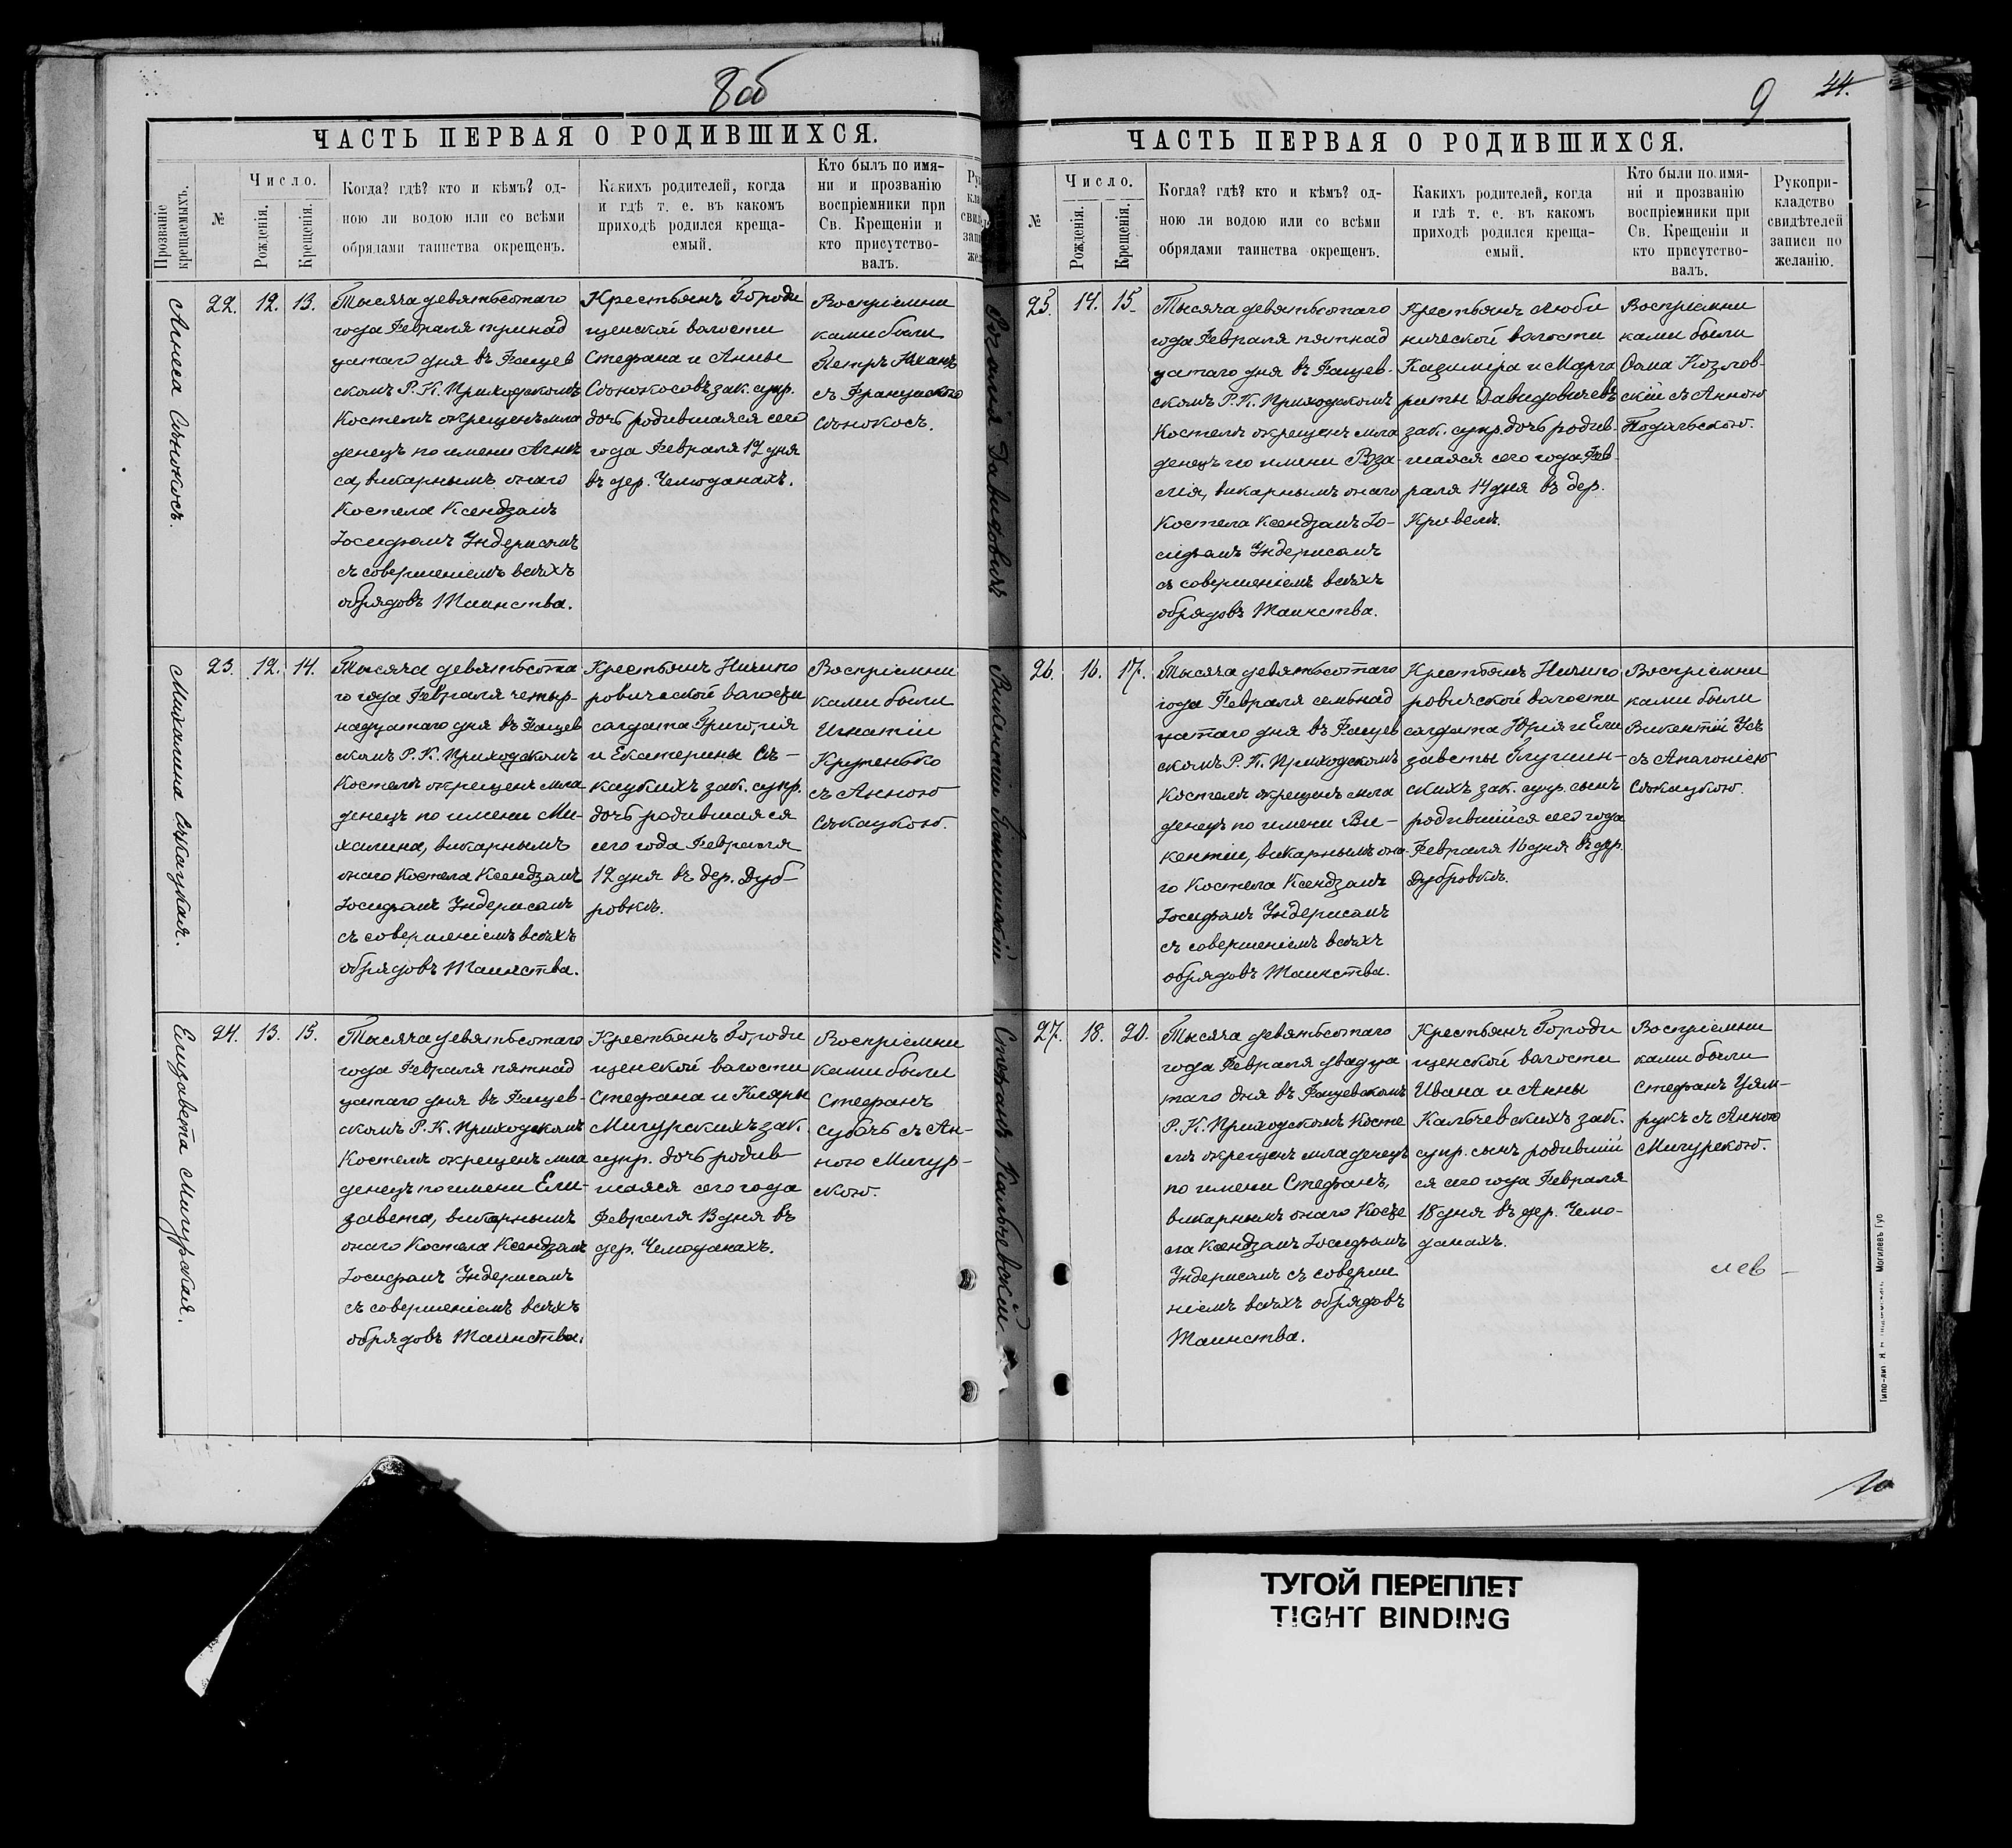 8об
ЧАСТЬ ПЕРВАЯ О РОДИВШИХСЯ.
Прозваніе крещаемыхъ.
№
Число.
Рожденія.
Крещенія.
Когда? гдѣ? кто и кѣмъ? од-
ною ли водою или со всѣми
обрядами таинства окрещенъ.
Какихъ родителей, когда
и гдѣ т. е. въ какомъ
приходѣ родился креща-
емый.
Кто былъ по имя-
ни и прозванію
воспріемники при
Св. Крещеніи и
кто присутство-
валъ.
Агнеса Сѣнокосъ.
22. 12. 13.
Тысяча девятьсотаго
года Февраля тринад
цатаго дня въ Фащев
скомъ Р. К. Приходскомъ
Костелѣ окрещенъ мла
денецъ по имени Агне
са, викарнымъ онаго
Костела Ксендзомъ
Іосифомъ Ундерисомъ
съ совершеніемъ всѣхъ
обрядовъ Таинства.
Крестьянъ Городи
щенской волости
Стефана и Анны
Сѣнокосовъ зак. супр.
дочь родившаяся сего
года Февраля 12 дня
въ дер. Чемоданахъ.
Воспріемни
ками были
Петръ
съ
Сѣнокосъ.
Михалина Сѣкацкая.
23. 12. 14.
Тысяча девятьсота
го года Февраля четыр-
надцатаго дня въ Фащев
скомъ Р. К. Приходскомъ
Костелѣ окрещенъ мла
денецъ по имени Ми-
халина, викарнымъ
онаго Костела Ксендзомъ
Іосифомъ Ундерисомъ
съ совершеніемъ всѣхъ
обрядовъ Таинства.
Крестьянъ Ничипо
ровичской волости
солдата Григорія
и Екатерины Сѣ-
кацкихъ зак. супр.
дочь родившаяся
сего года Февраля
12 дня въ дер. Дуб
ровкѣ.
Воспріемни
ками были
Игнатій
Крупенько
съ Анною
Сѣкацкою.
Елизавета Мигурская.
24. 13. 15.
Тысяча девятьсотаго
года Февраля пятнад
цатаго дня въ Фащев-
скомъ Р. К. Приходскомъ
Костелѣ окрещенъ мла
денецъ по имени Ели-
завета, викарнымъ
онаго Костела Ксендзомъ
Іосифомъ Ундерисомъ
съ совершеніемъ всѣхъ
обрядовъ Таинства.
Крестьянъ Городи
щенской волости
Стефана и Кляры
Мигурскихъ зак.
супр. дочь родив
шаяся сего года
Февраля 13 дня въ
дер. Чемоданахъ.
Воспріемни
ками были
Стефанъ
Субочъ съ Ан-
ною Мигур-
скою.
9 44.
ЧАСТЬ ПЕРВАЯ О РОДИВШИХСЯ.
№
Число.
Рожденія.
Крещенія.
Когда? гдѣ? кто и кѣмъ? од-
ною ли водою или со всѣми
обрядами таинства окрещенъ.
Какихъ родителей, когда
и гдѣ т. е. въ какомъ
приходѣ родился креща-
емый.
Кто были по имя-
ни и прозванію
воспріемники при
Св. Крещеніи и
кто присутство-
валъ.
Рукопри-
кладство
свидѣтелей
записи по
желанію.
Розалія Давидовичъ
25. 14. 15.
Тысяча девятьсотаго
года Февраля пятнад
цатаго дня въ Фащев-
скомъ Р. К. Приходскомъ
Костелѣ окрещенъ мла
денецъ по имени Роза-
лія, викарнымъ онаго
Костела Ксендзомъ Іо-
сифомъ Ундерисомъ
съ совершеніемъ всѣхъ
обрядовъ Таинства.
Крестьянъ Люби
нической волости
Казиміра и Марга
риты Давидовичевъ
зак. супр. дочь родив-
шаяся сего года Фев-
раля 14 дня въ дер.
Кривелѣ.
Воспріемни
ками были
Фома Козлов-
скій съ Анною
Подольскою.
Викентій
26. 16. 17.
Тысяча девятьсотаго
года Февраля семьнад
цатаго дня въ Фащев
скомъ Р. К. Приходскомъ
Костелѣ окрещенъ мла
денецъ по имени Ви-
кентій, викарнымъ она-
го Костела Ксендзомъ
Іосифомъ Ундерисомъ
съ совершеніемъ всѣхъ
обрядовъ Таинства.
Крестьянъ Ничипо
ровичской волости
солдата Юрія и Ели
заветы
скихъ зак. супр. сынъ
родившійся сего года
Февраля 16 дня въ дер.
Дубровкѣ.
Воспріемни
ками были
Викентій
съ Аполоніею
Сѣкацкою.
Стефанъ Кальчевскій
27. 18. 20.
Тысяча девятьсотаго
года Февраля двадца
таго дня въ Фащевскомъ
Р. К. Приходскомъ Косте
лѣ окрещенъ младенецъ
по имени Стефанъ,
викарнымъ онаго Косте
ла Ксендзомъ Іосифомъ
Ундерисомъ съ соверше
ніемъ всѣхъ обрядовъ
Таинства.
Крестьянъ Городи
щенской волости
Ивана и Анны
Кальчевскихъ зак.
супр. сынъ родившій
ся сего года Февраля
18 дня въ дер. Чемо-
данахъ.
Воспріемни
ками были
Стефанъ Цям-
рукъ съ Анною
Мигурскою.
лев
Могилевъ Губ
10
ТУГОЙ ПЕРЕПЛЕТ
TIGHT BINDING